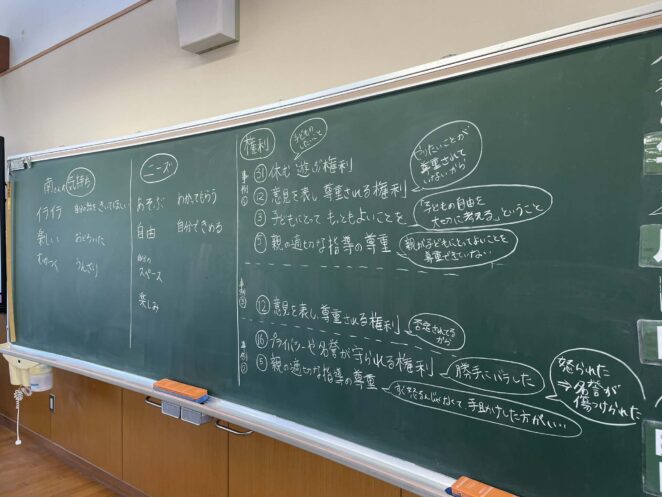 南さんの気持ち
イライラ 自分の話をきいてほしい
楽しい おどろいた
むかつく うんざり
ニーズ
あそぶ わかってもらう
自由 自分できめる
自分の
スペース
楽しみ
権利
子どもの
したいこと
事例①
㉛ 休む 遊ぶ権利
⑫ 意見を表し尊重される権利
やりたいことが
尊重されて
いないから
③ 子どもにとって もっともよいことを
「子どもの自由を
大切に考える。」ということ
⑤ 親の適切な指導の尊重
親が子どもにとってよいことを
尊重できていない
事例②
⑫ 意見を表し尊重される権利
否定されてる
から
事例③
⑯ プライバシーや名誉が守られる権利
勝手にバラした
怒られた
⇒名誉が
傷つけられた
⑤ 親の適切な指導の尊重
すぐ怒るんじゃなくて、手助けした方がいい…